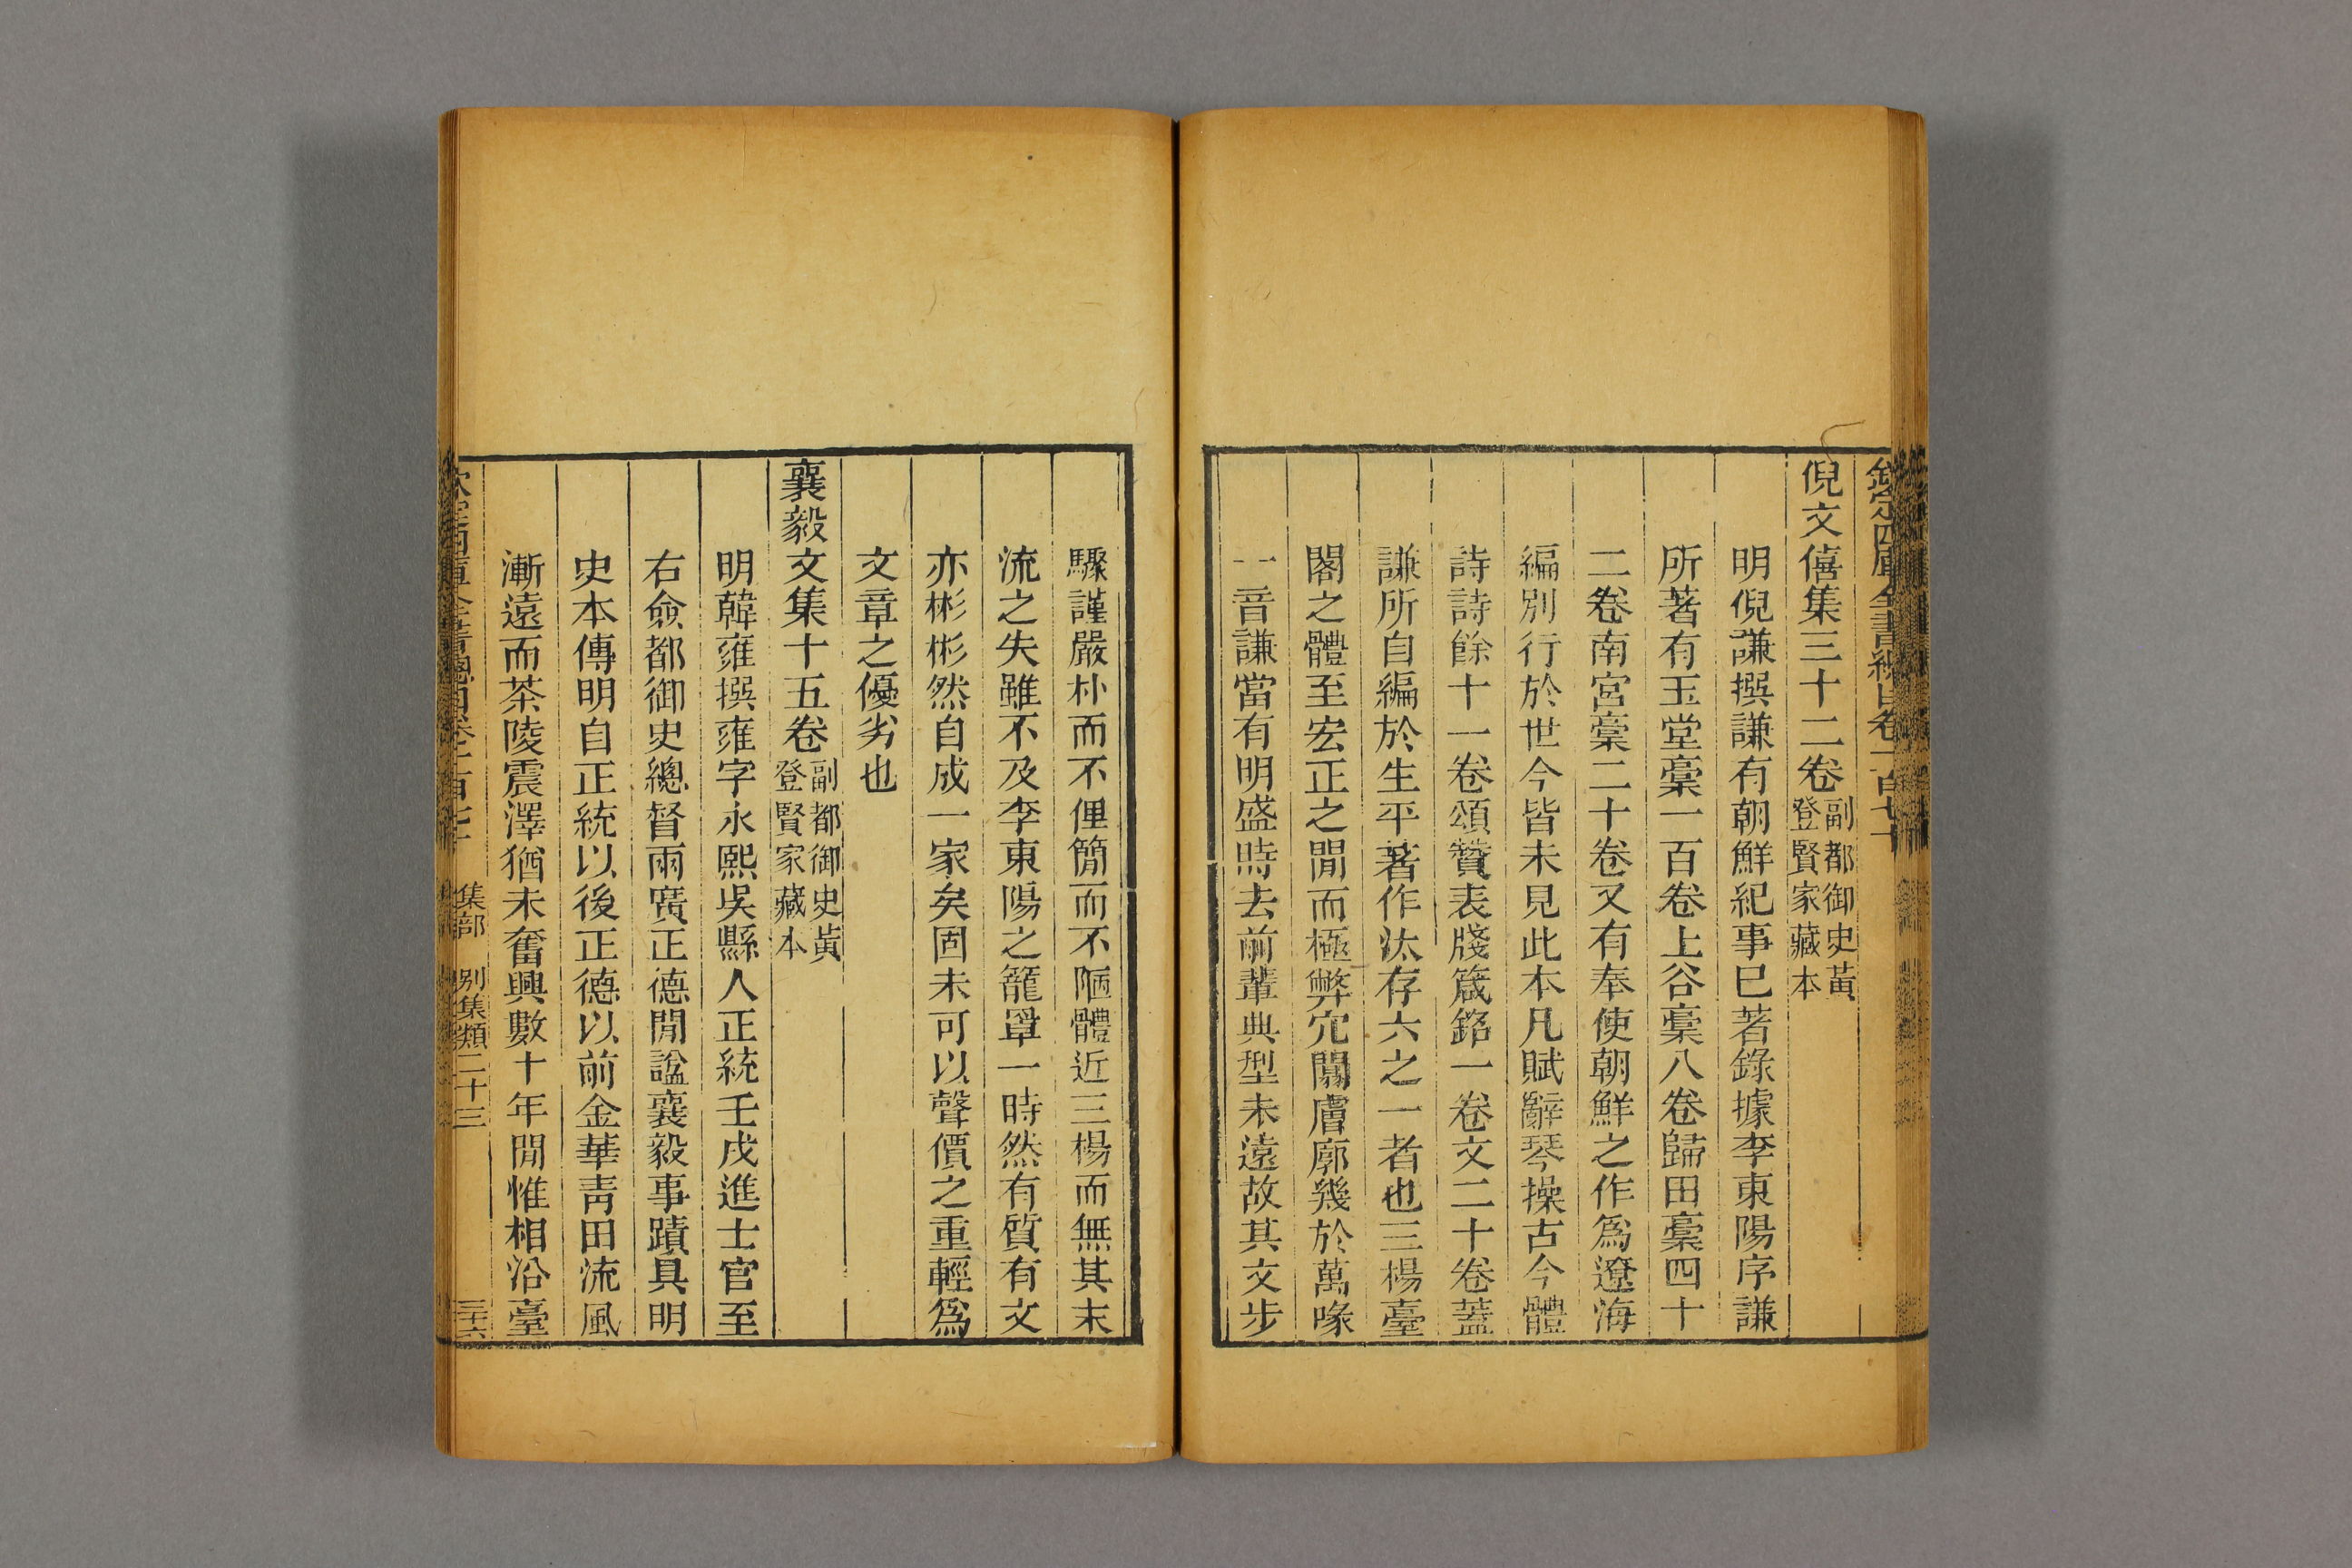 欽定四庫全書總目卷一百七十
倪文僖集三十二卷副都御史黃登賢家藏本
明倪謙撰謙有朝鮮紀事已著錄據李東陽序謙
所著有玉堂稾一百卷上谷稾八卷歸田稾四十
二卷南宮稾二十卷又有奉使朝鮮之作爲遼海
編別行於世今皆未見此本凡賦辭琴操古今體
詩詩餘十一卷頌贊表牋箴銘一卷文二十卷蓋
謙所自編於生平著作汰存六之一者也三楊臺
閣之體至宏正之閒而極弊冗闒膚廓幾於萬喙
一音謙當有明盛時去前輩典型未遠故其文步
驟謹嚴朴而不俚簡而不陋體近三楊而無其末
流之失雖不及李東陽之籠罩一時然有質有文
亦彬彬然自成一家矣固未可以聲價之重輕爲
文章之優劣也
襄毅文集十五卷副都御史黃登賢家藏本
明韓雍撰雍字永熙吳縣人正統壬戌進士官至
右僉都御史總督兩廣正德閒諡襄毅事蹟具明
史本傳明自正統以後正德以前金華青田流風
漸遠而茶陵震澤猶未奮興數十年閒惟相沿臺
欽定四庫全書總目卷一百七十 集部 別集類二十三 三十六